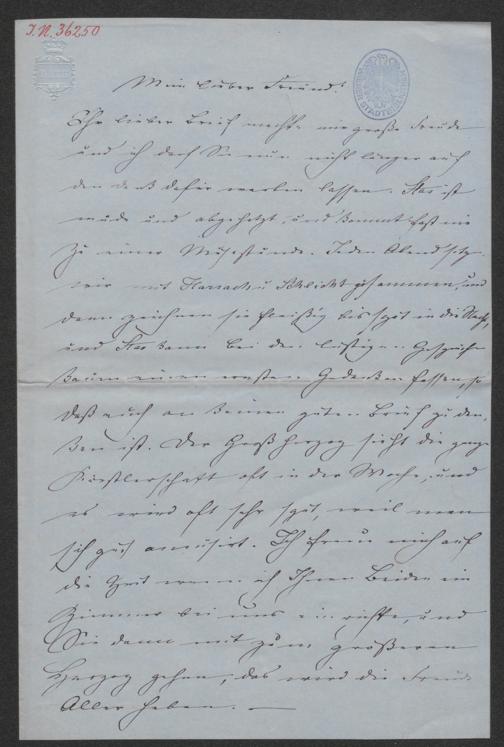 J.N. 36250
Mein lieber Freund!
Ihr lieber Brief machte mir große Freude
und ich darf Sie nun nicht länger auf
den Dank dafür warten lassen. Stas ist
müde und abgehetzt, und kommt fast nie
zu einer Musestunde. Jeden Abend sitzen
wir mit Harrach u Schlicht zusammen, und
dann zeichnen sie fleißig bis spät in die Nacht,
und Stas kann bei den lustigen Gesprächen
kaum einen ernsten Gedanken fassen, so
daß auch an keinen guten Brief zu den-
ken ist. Der Großherzog sieht die ganze
Künstlerschaft oft in der Woche, und
es wird oft sehr spät, weil man
sich gut amüsirt. Ich freue mich auf
die Zeit wenn ich Ihnen Beiden ein
Zimmer bei uns einrichte, und
Sie dann mit zum größeren
Herzog gehen, das wird die Freude
Aller haben. —